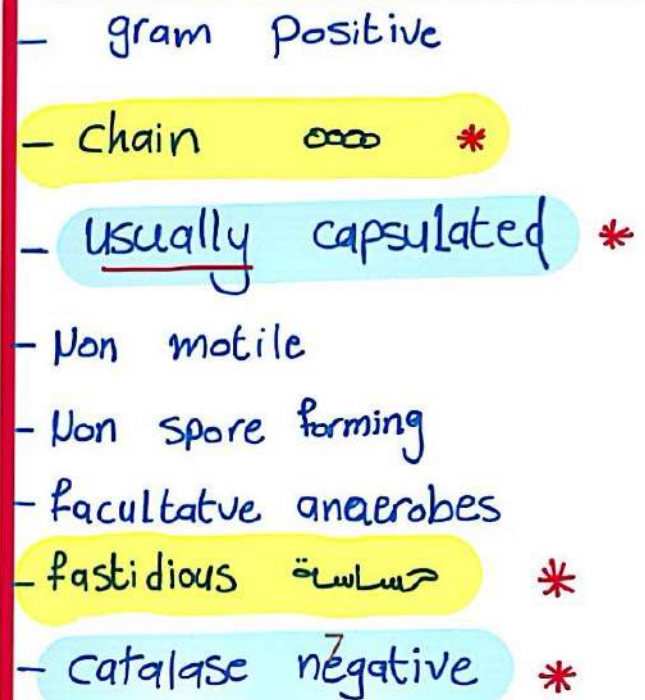 - gram Positive
- chain *
- usually capsulated *
- Non motile
- Non spore forming
- facultatve anaerobes
- fastidious حساسة *
- catalase negative *